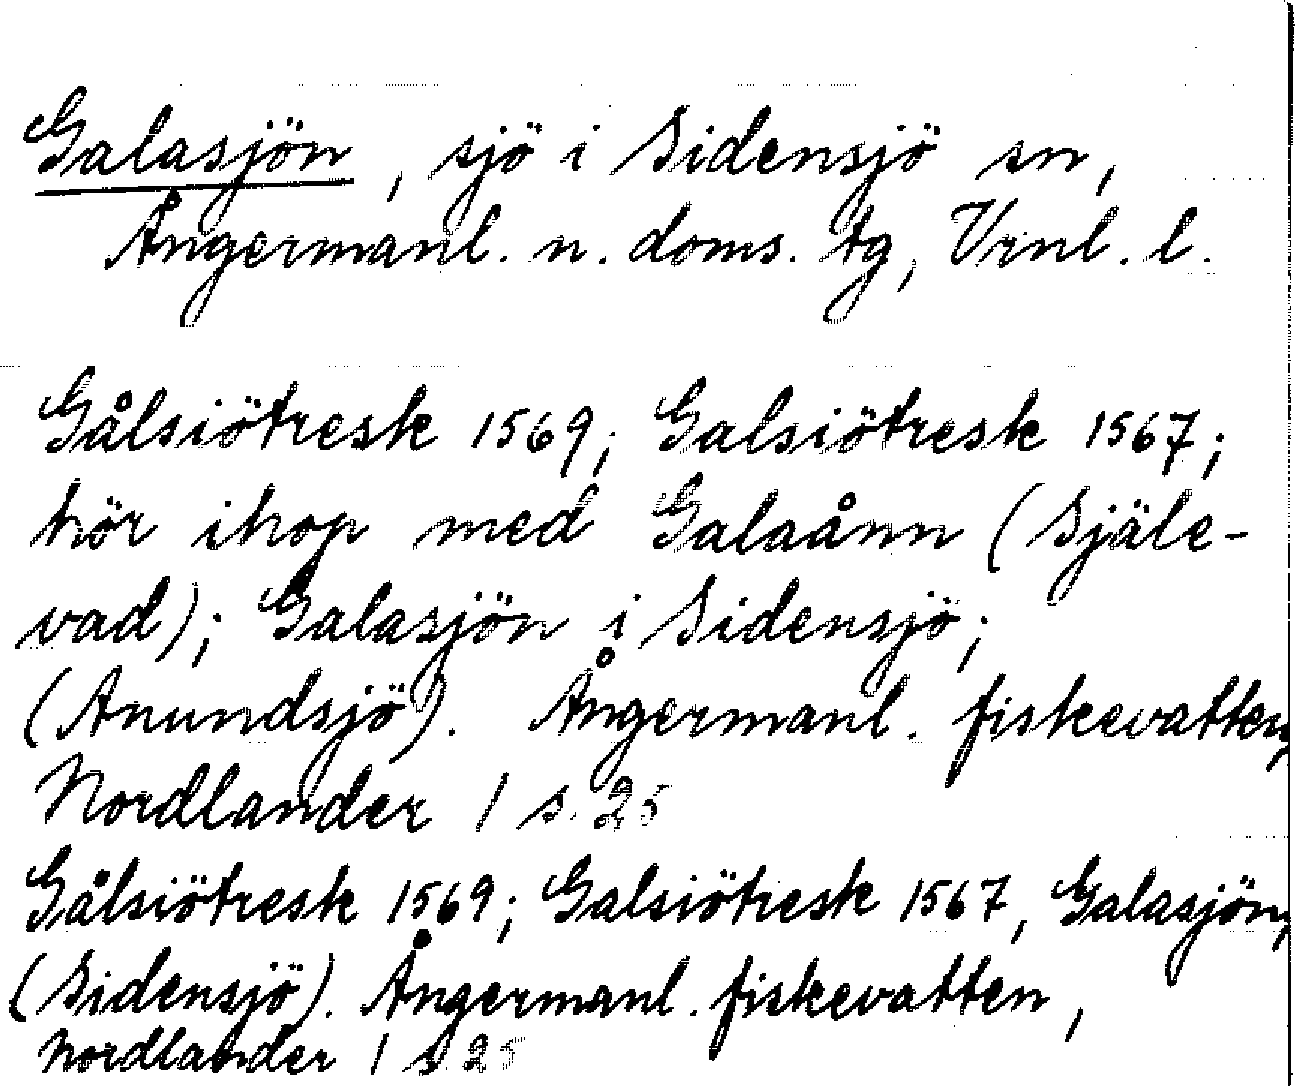 Galasjön, sjö i Sidensjö sn,
Ångermanl. n. doms. tg, Vrnl. l.
Gålsiötresk 1569; Galsiötresk 1567;
hör ihop med Galaånn (Själe-
vad); Galasjön i Sidensjö;
(Anundsjö). Ångermanl. fiskevatten,
Nordlander 1 s. 25
Gålsiötresk 1569; Galsiötresk 1567, Galasjön,
(Sidensjö). Ångermanl. fiskevatten,
Nordlander 1 s 25